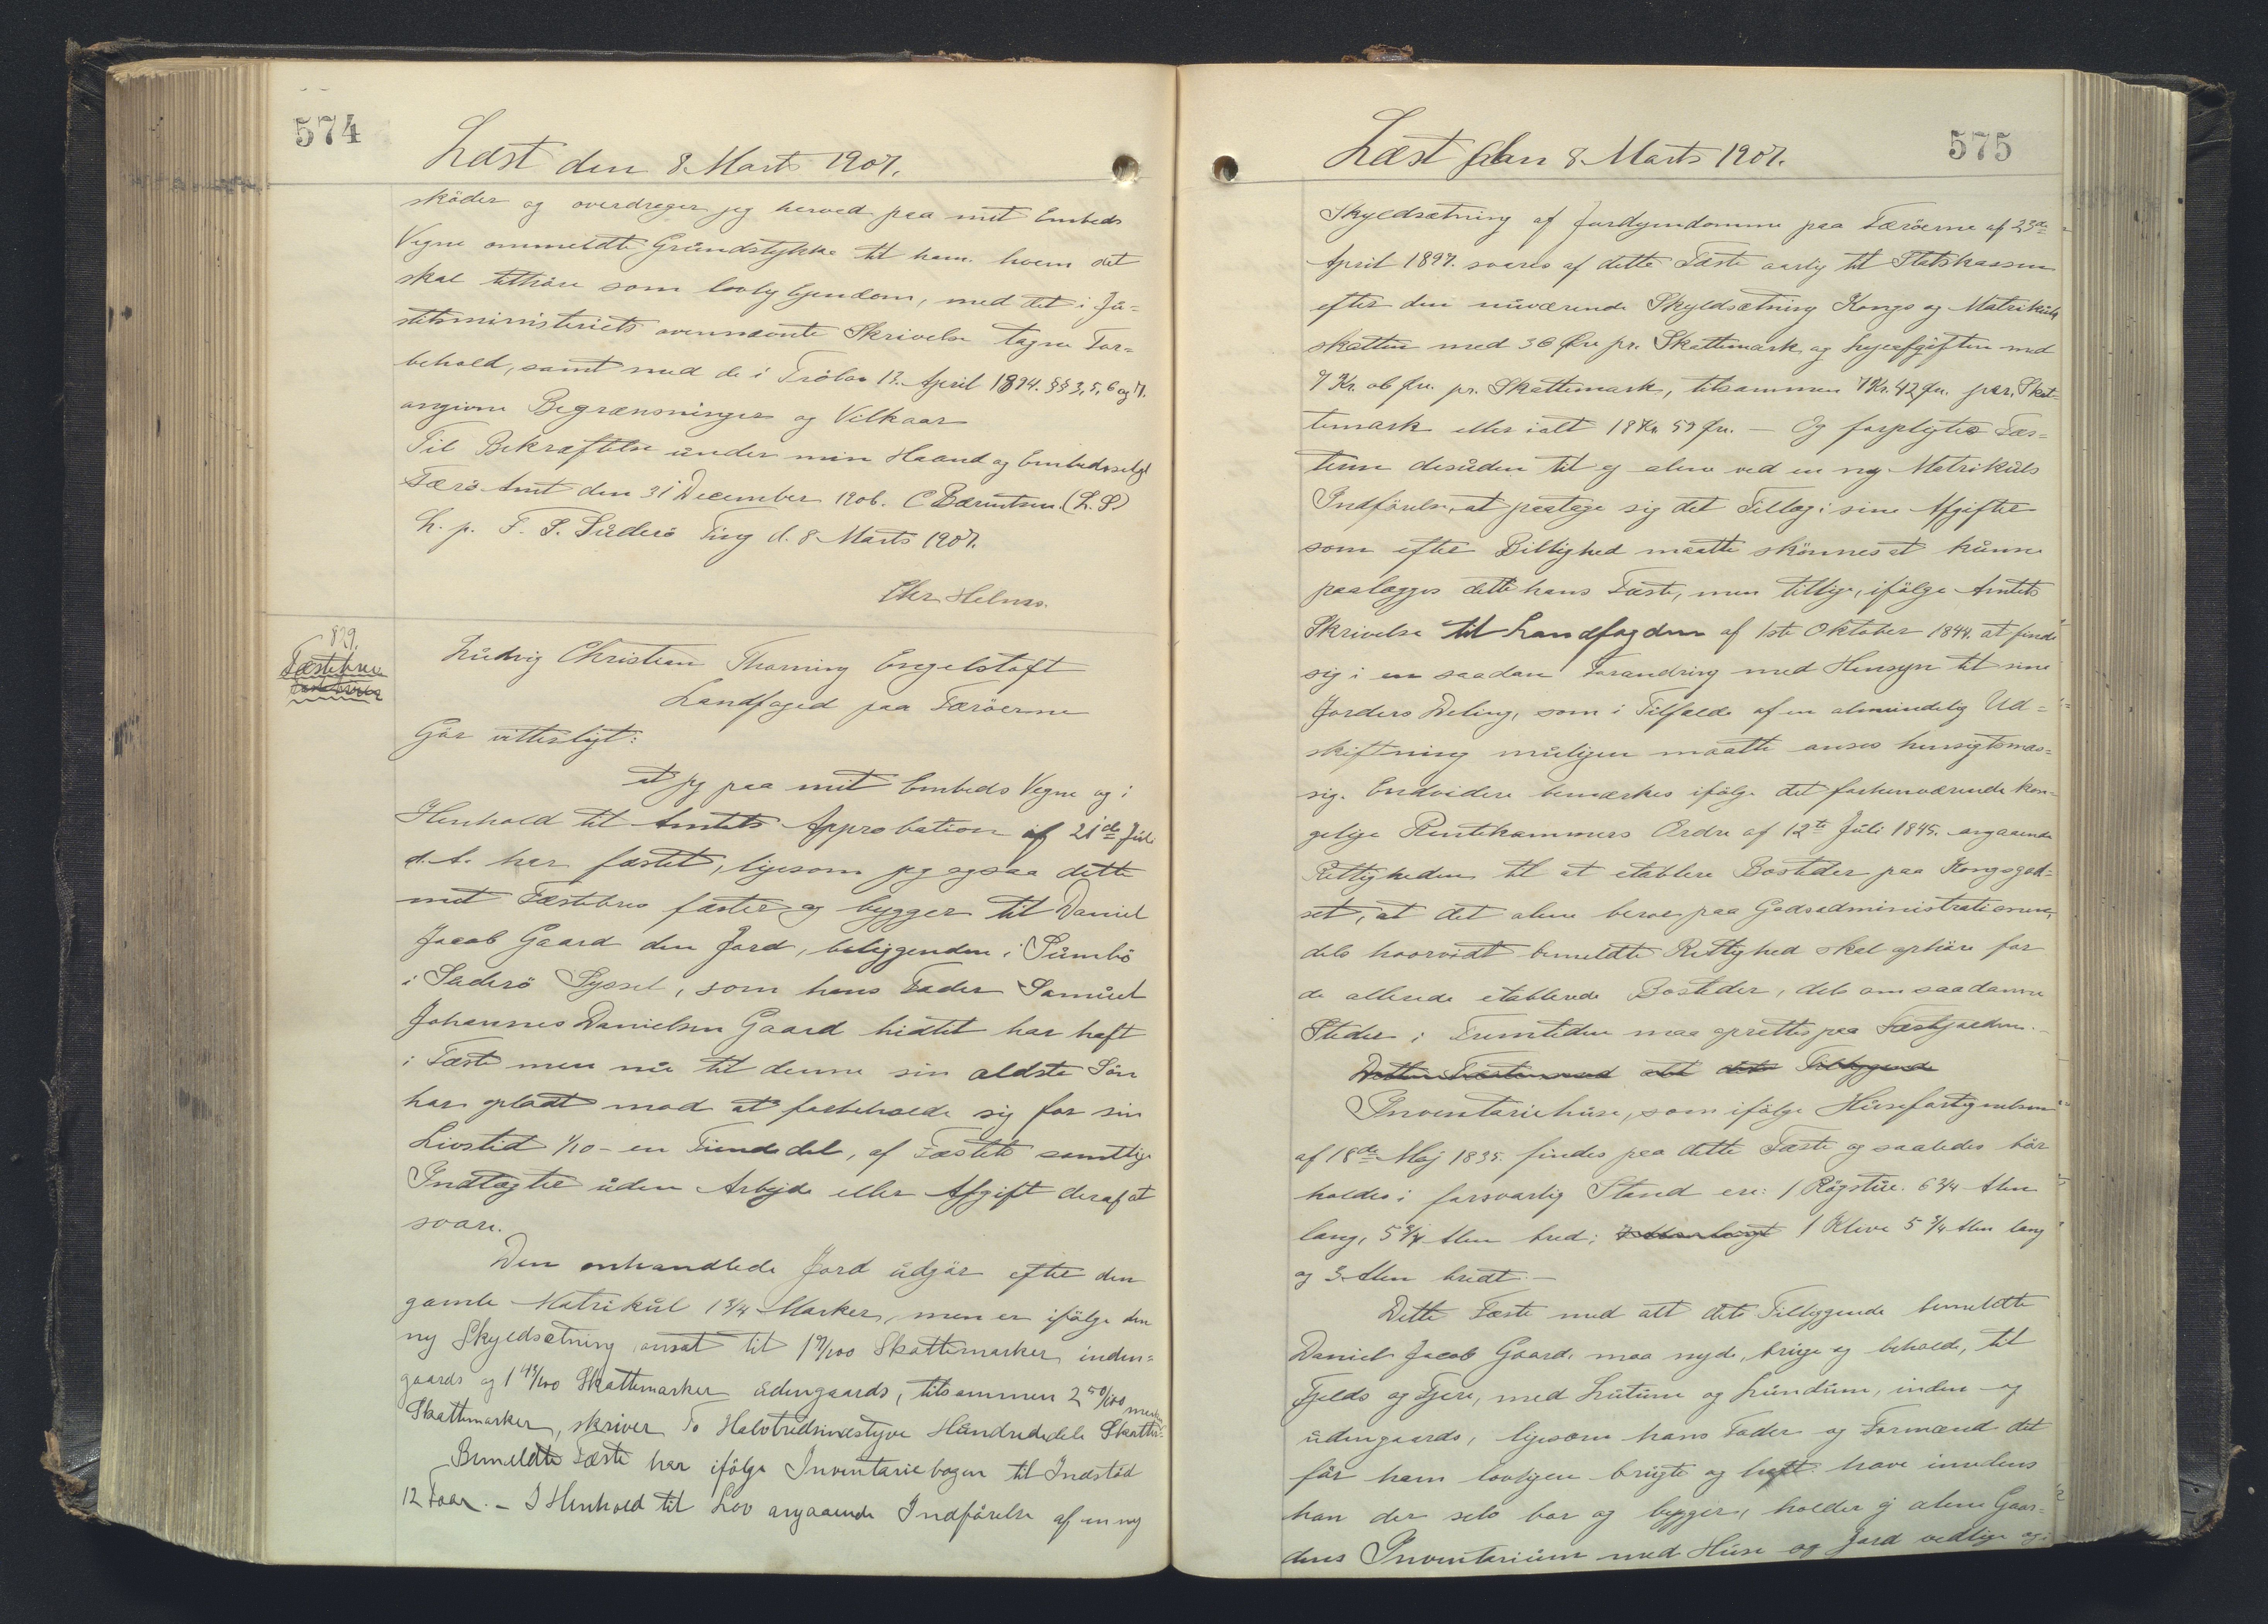 574
Læst den 8 Marts 1907.
skøder og overdrager jeg herved paa mit Embeds
Vegne ommeldte Grundstykke til ham hvem det
skal tilhøre som lovlig Ejendom, med det i Ju-
stitsministeriets ovennævnte Skrivelse tagne For-
behold, samt med de i Frdlov 13. April 1894. §§ 3, 5, 6 og 17.
angivne Begrænsninger og Vilkaar
Til Bekræftelse under min Haand og Embedssegl
Færø Amt den 31 December 1906. C Bærentsen. (L. S)
L. p. F. S. Suderø Ting d. 8 Marts 1907.
Chr Helms.
829.
Fæstebrev
Ludvig Christian Thorning Engelstoft
Landfoged paa Færøerne
Gør vitterligt:
at jeg paa mit Embeds Vegne og i
Henhold til Amtets Approbation af 21de Juli
d. A. har fæstet, ligesom jeg ogsaa dette
mit Fæstebrev fæster og bygger til Daniel
Jacob Gaard den Jord, beliggenden i Sumbø
i Suderø Syssel, som hans Fader Samuel
Johannes Danielsen Gaard hidtil har haft
i Fæste men nu til denne sin ældste Søn
har opladt mod at forbeholde sig for sin
Livstid 1/10 - en Tiendedel, af Fæstets samtlige
Indtægter uden Arbejde eller Afgift deraf at
svare.
Den omhandlede Jord udgør efter den
gamle Matrikul 1 3/4 Marker, men er ifølge den
ny Skyldsætning ansat til 1 /100 Skattemarker inden-
gaards og 1 49/100 Skattemarker udengaards, tilsammen 2 50/100
Skattemarker, skriver To Halvtredsindstyve Hundrededele Skatte-
marker
Bemeldte Fæste har ifølge Inventariebogen til Indstød
12 Faar. - I Henhold til Lov angaaende Indførelse af en ny
575
Læst den 8 Marts 1907.
Skyldsætning af Jordejendomme paa Færøerne af 23de
April 1897. svares af dette Fæste aarlig til Statskassen
efter den nuværende Skyldsætning Konge og Matrikuls
skatten med 36 Øre pr. Skattemark og Lejeafgiften med
7 Kr. 06 Øre pr. Skattemark, tilsammen 7 Kr. 42 Øre per. Skat-
temark eller ialt 18 Kr 59 Øre. - Og forpligtes Fæs-
teren desuden til ej alene ved en ny Matrikuls
Indførelse, at paatage sig det Tillæg i sine Afgifter
som efter Billighed maatte skønnes at kunne
paalægges dette hans Fæste, men tillige, ifølge Amtets
Skrivelse til Landfogden af 1ste Oktober 1844. at finde
sig i en saadan Forandring med Hensyn til sine
Jorders Deling, som i Tilfælde af en almindelig Ud-
skiftning muligen maatte anses hensigtsmæs-
sig. Endvidere bemærkes ifølge det forhenværende kon-
gelige Rentekammers Ordre af 12te Juli 1845. angaaende
Rettigheden til at etablere Bosteder paa Kongsgod-
set, at det alene beroer paa Godsadministrationen,
dels hvorvidt bemeldte Rettighed skal ophøre for
de allerede etablerede Bosteder, dels om saadanne
Steder i Fremtiden maa oprettes paa Fæstejorden. -
Dette Fæste med alt dets Tilliggende
Inventariehuse, som ifølge Husefortegnelsen
af 18de Maj 1835. findes paa dette Fæste og saaledes bør
holdes i forsvarlig Stand ere: 1 Røgstue. 6 3/4 Alen
lang, 5 3/4 Alen bred; 1 Kleve 5 3/4 Alen lang
og 3 Alen bredt -
Dette Fæste med alt dets Tilliggende bemeldte
Daniel Jacob Gaard, maa nyde, bruge og beholde, til
Fjelds og Fjere, med Lutum og Lundum, inden - og
udengaards, ligesom hans Fader og Formænd det
før ham lovligen brugt og haft have imedens
han der selv bor og bygger, holder ej alene Gaar-
dens Inventarium med Huse og Jord vedlige og